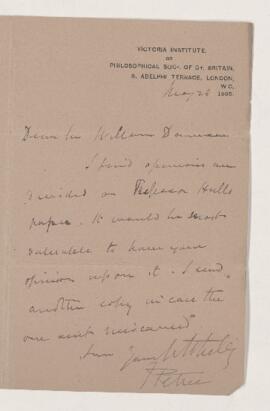 VICTORIA INSTITUTE,
OR
PHILOSOPHICAL SOCY. OF GT. BRITAIN,
8, ADELPHI TERRACE, LONDON,
W.C.
May 26 1885.
Dear Sir William Dawson
I find opinions are
divided on Professor Hull's
paper. It would be most
valuable to have your
opinion upon it. I send
another copy in case the
one sent miscarried
Petrie